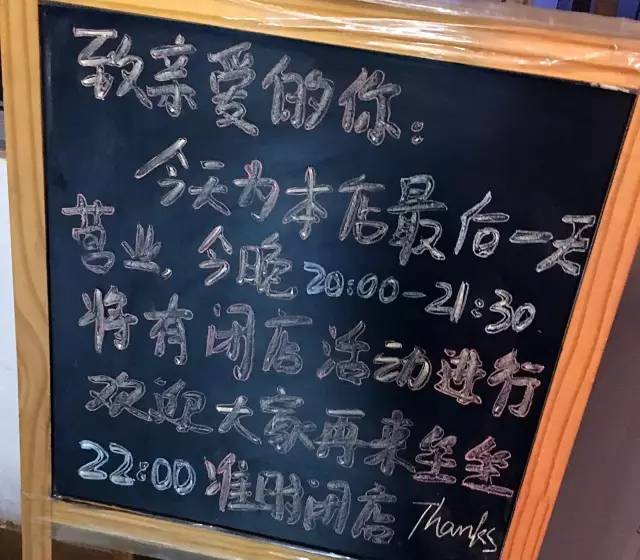 致亲爱的你:
今天为本店最后一天
营业,今晚20:00-21:30
将有闭店活动进行
欢迎大家再来坐坐
22:00准时闭店 Thanks